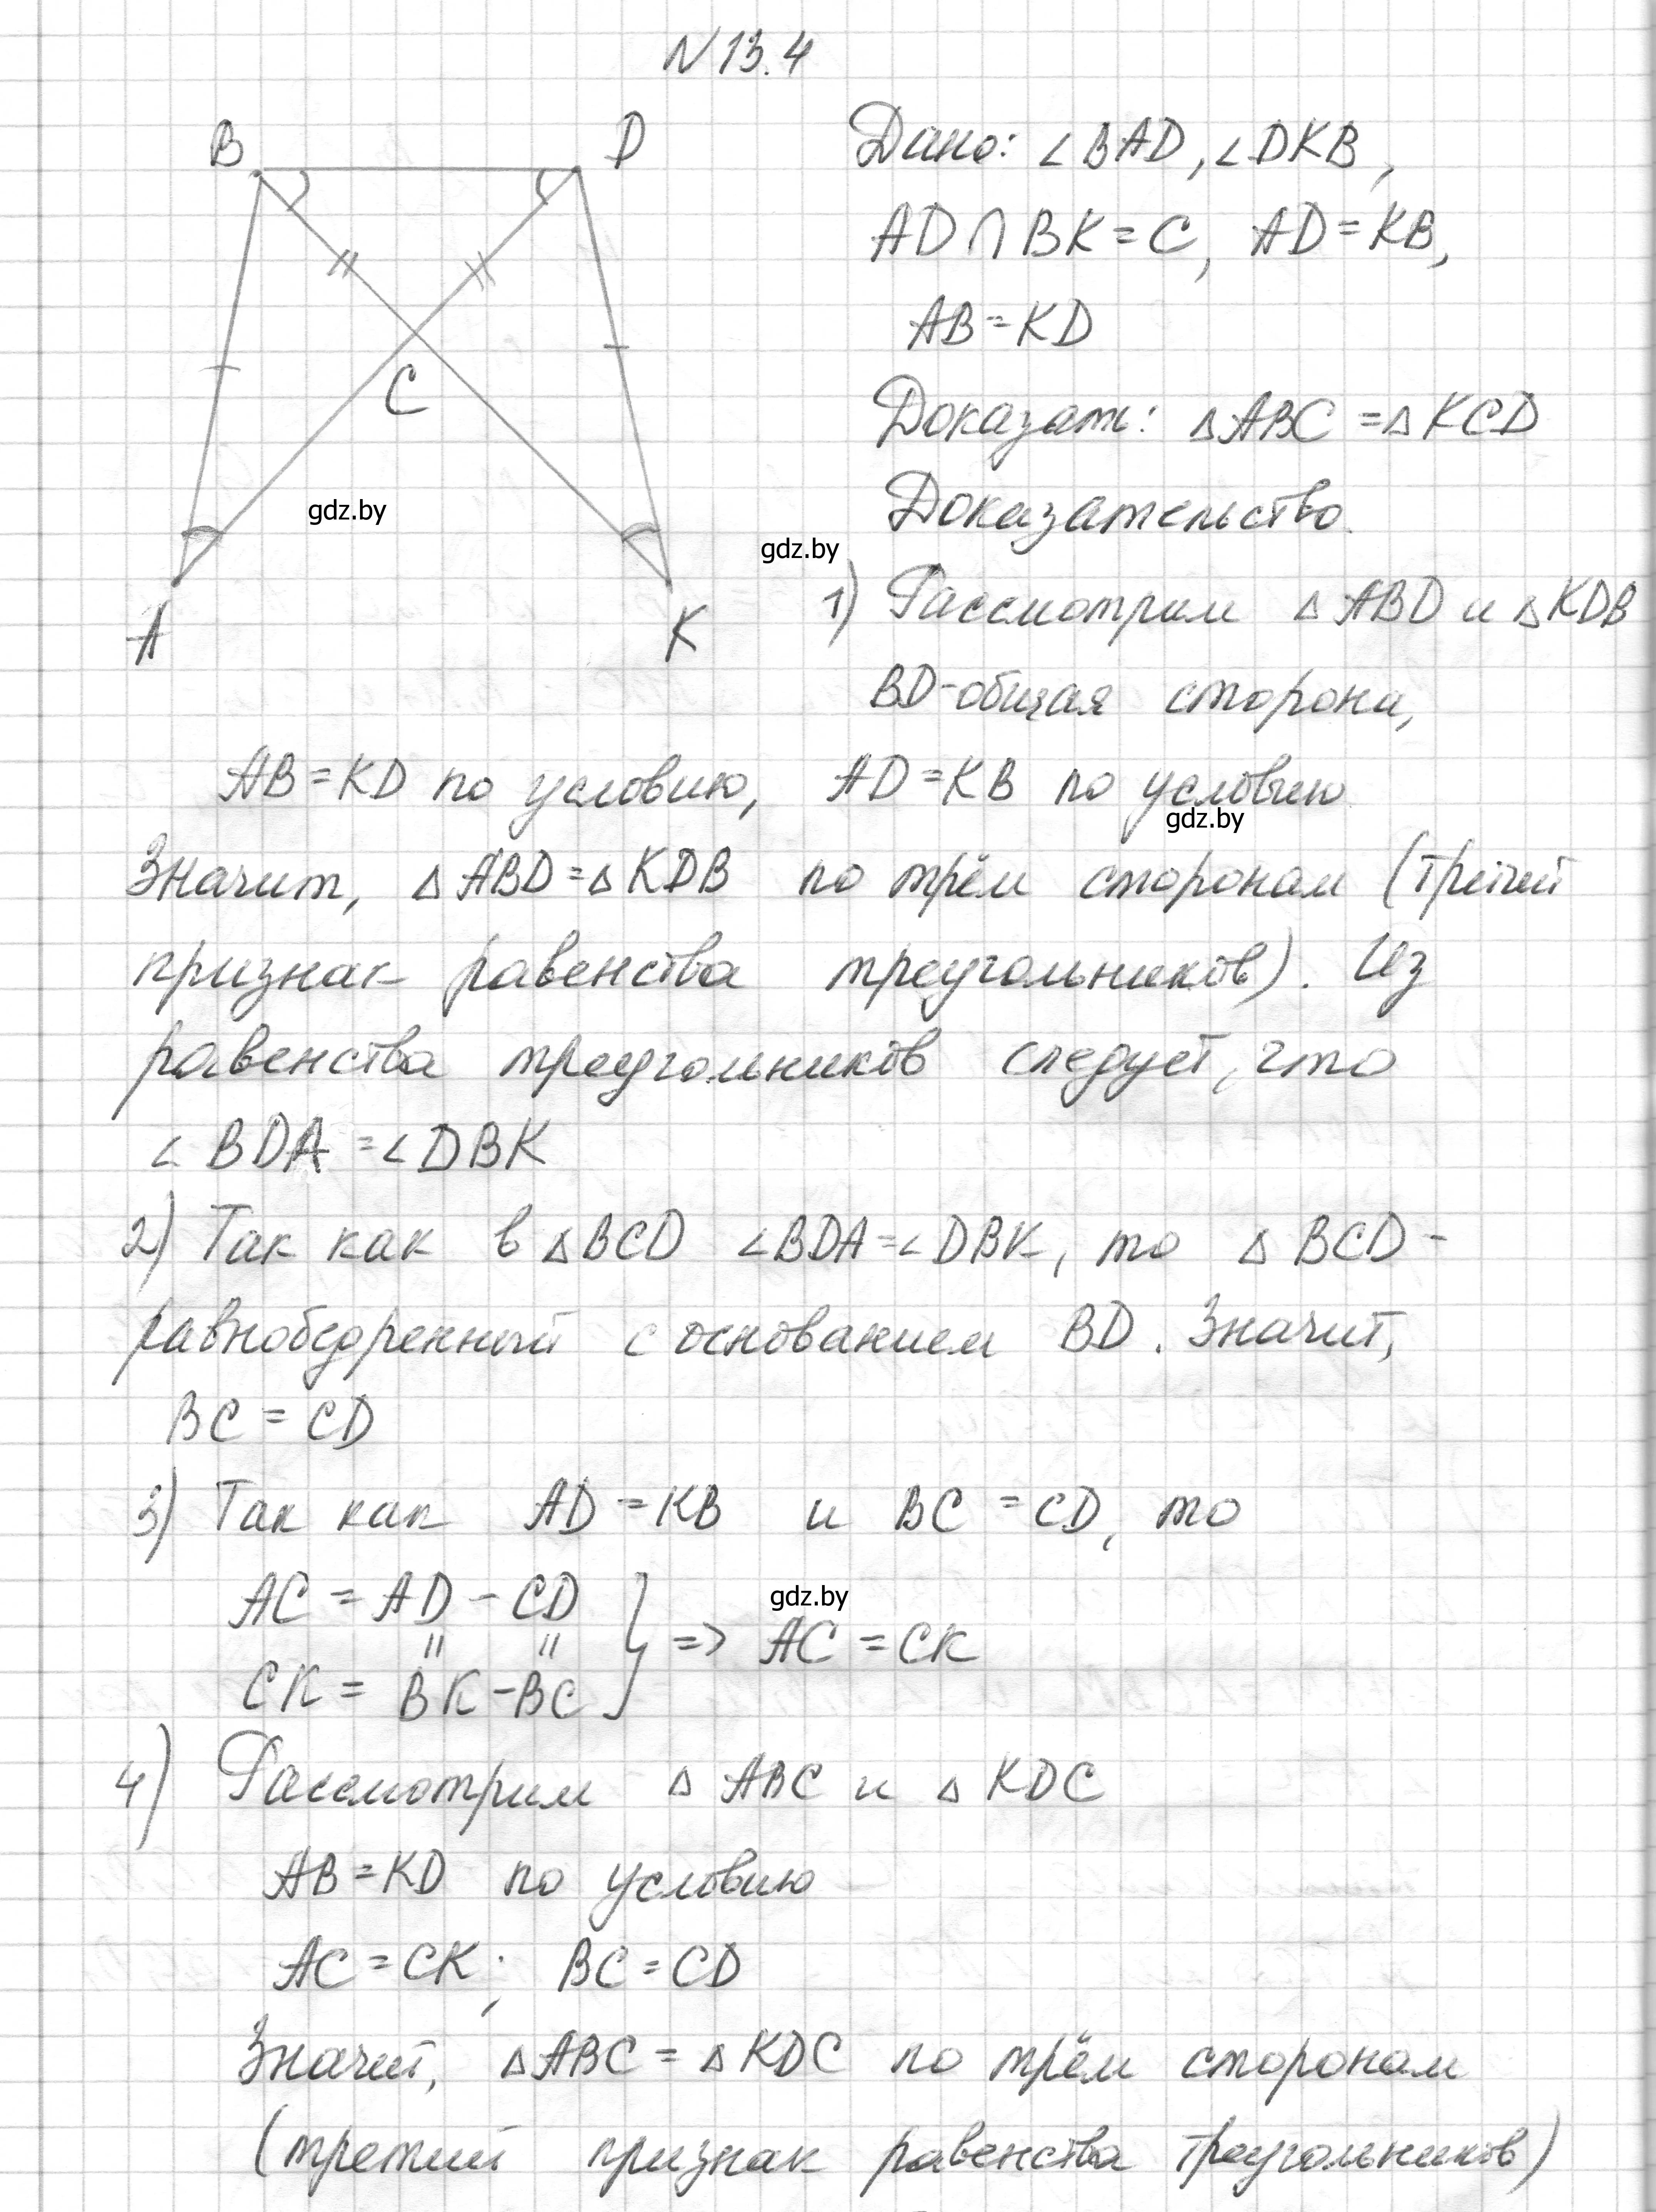 N 13.4
B
D
C
A
K
gdz.by
Дано: ∠BAD, ∠DKB,
AD ∩ BK = C, AD = KB,
AB = KD
Доказать: ΔABC = ΔKCD
Доказательство.
gdz.by
1) Рассмотрим ΔABD и ΔKDB
BD-общая сторона,
AB = KD по условию, AD = KB по условию
gdz.by
Значит, ΔABD = ΔKDB по трём сторонам (третий
признак равенства треугольников). Из
равенства треугольников следует, что
∠BDA = ∠DBK
2) Так как в ΔBCD ∠BDA = ∠DBK, то ΔBCD -
равнобедренный с основанием BD. Значит,
BC = CD
3) Так как AD = KB и BC = CD, то
AC = AD - CD
|| ||
CK = BK - BC } => AC = CK
gdz.by
4) Рассмотрим ΔABC и ΔKDC
AB = KD по условию
AC = CK; BC = CD
Значит, ΔABC = ΔKDC по трём сторонам
(третий признак равенства треугольников)